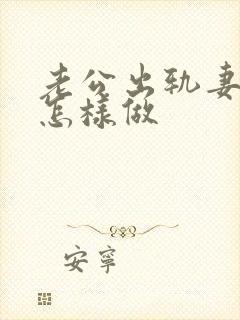 老公出轨妻
怎樣做
安寧